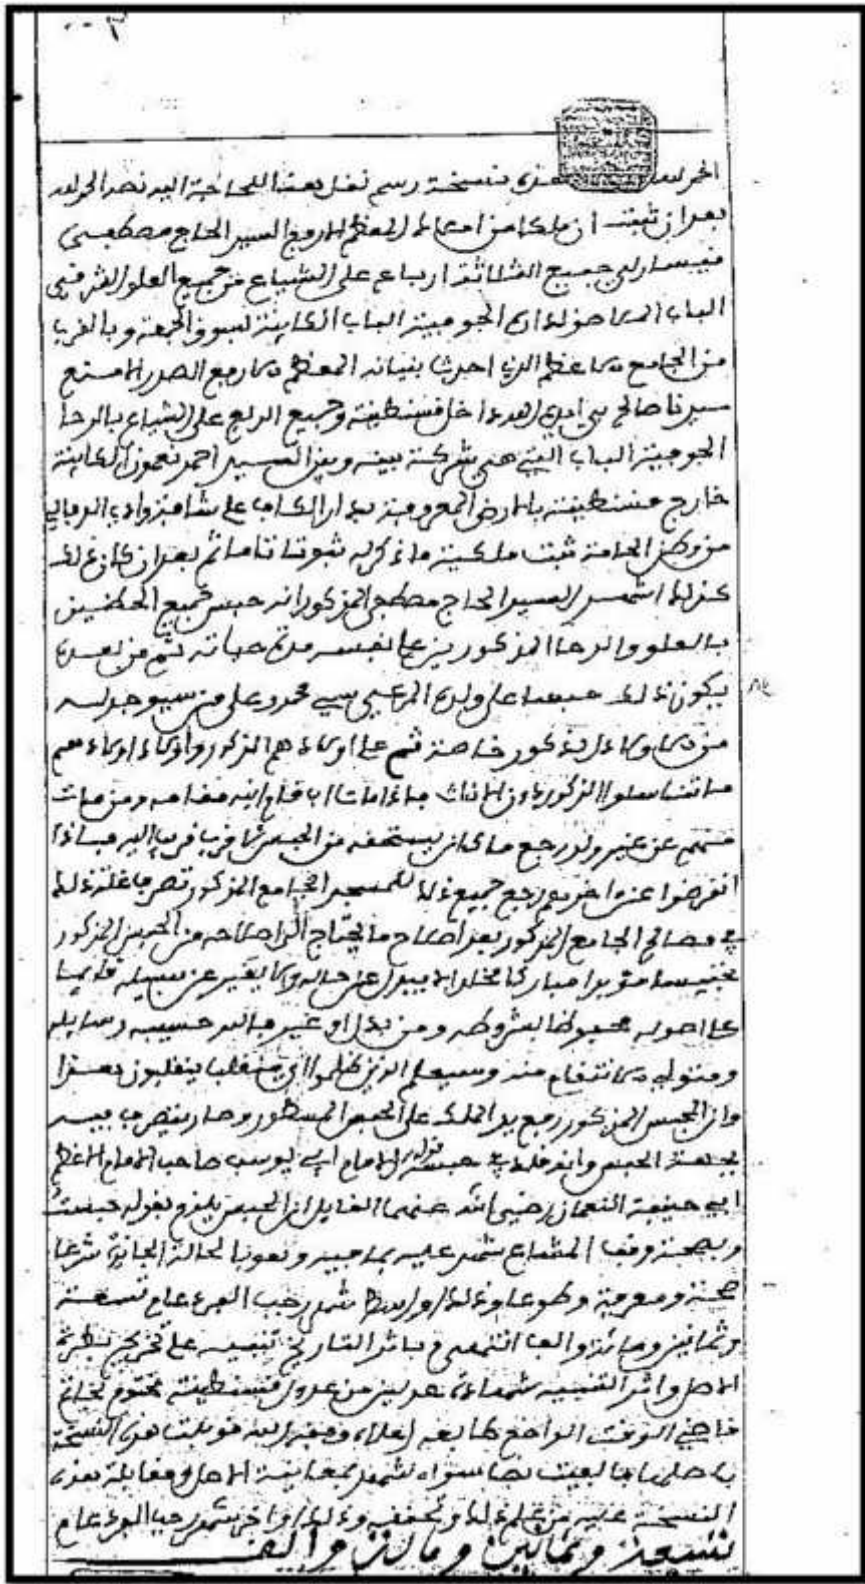 الحمد لله هذه نسخة رسم نقل هنا للحاجة إليه نصه الحمد لله
بعد ان ثبت ان ملكا من املاك المعظم الارفع السيد الحاج مصطفى
جميع الثلاثة ارباع على الشياع من جميع العلو الشرقي
الباب الجوفية الباب الكاينة لسوق الجمعة وبالقرب
من الجامع الاعظم الذي احدث بنيانه المعظم الارفع الصدر الامنع
سيدنا صالح باي داخل قسنطينة وجميع الربع على الشياع بالرحا
الجوفية الباب التي هي شركة بينه وبين السيد احمد نعمون الكاينة
خارج قسنطينة بالارض المعروفة على شافة وادي الرمال
من وطن الحامة ثبت ملكية ما ذكر له ثبوتا تاما ثم بعد ان كان ذلك
كذلك اشهد السيد الحاج مصطفى المذكور انه حبس جميع الحظين
بالعلو والرحا المذكورين على نفسه مدة حياته ثم من بعده
يكون ذلك حبسا على ولده المرعي سي محمد وعلى من سيوجد له
من الاولاد الذكور خاصة ثم على اولادهم الذكور واولاد اولادهم
ما تناسلوا الذكور دون الاناث فاذا مات اب قام ابنه مقامه ومن مات
منهم عن غير ولد رجع ما كان يستحقه من الحبس لاقرب قريب اليه فاذا
انقرضوا عن اخرهم رجع جميع ذلك للمسجد الجامع المذكور تصرف غلة ذلك
في مصالح الجامع المذكور بعد اصلاح ما يحتاج الى اصلاحه من الحبس المذكور
تحبيسا مؤبدا مباركا مخلدا لا يبدل عن حاله ولا يغير عن سبيله قايما
على اصوله محفوظا بشروطه ومن بدل او غير فالله حسيبه وسايله
ومتولي الانتقام منه وسيعلم الذين ظلموا اي منقلب ينقلبون هذا
وان المحبس المذكور رفع يد الملك على الحبس المسطور وصار يتصرف فيه
بجهة الحبس وانه قلد في حبسه قول الامام ابي يوسف صاحب الامام الاعظم
ابي حنيفة النعمان رضي الله عنهما القايل ان الحبس يلزم بقوله حبست
وبصحة وقف المشاع شهد عليه بما فيه وهو بالحالة الجايزة شرعا
صحة ومعرفة وطوعا وذلك اواسط شهر رجب الفرد عام تسعة
وثمانين ومائة والف انتهى وباثر التاريخ تنبيه على
الاصل واثر التنبيه شهادة عدلين من عدول قسنطينة مختوم بخاتم
قاضي الوقت الواضع طابعه اعلاه وفقه الله قوبلت هذه النسخة
باصلها فالفيت نصا سواء شهد بمعاينة الاصل ومقابلة هذه
النسخة عليه من علم ذلك وتحققه وذلك اواخر شهر رجب الفرد عام
تسعة وثمانين ومائة والف